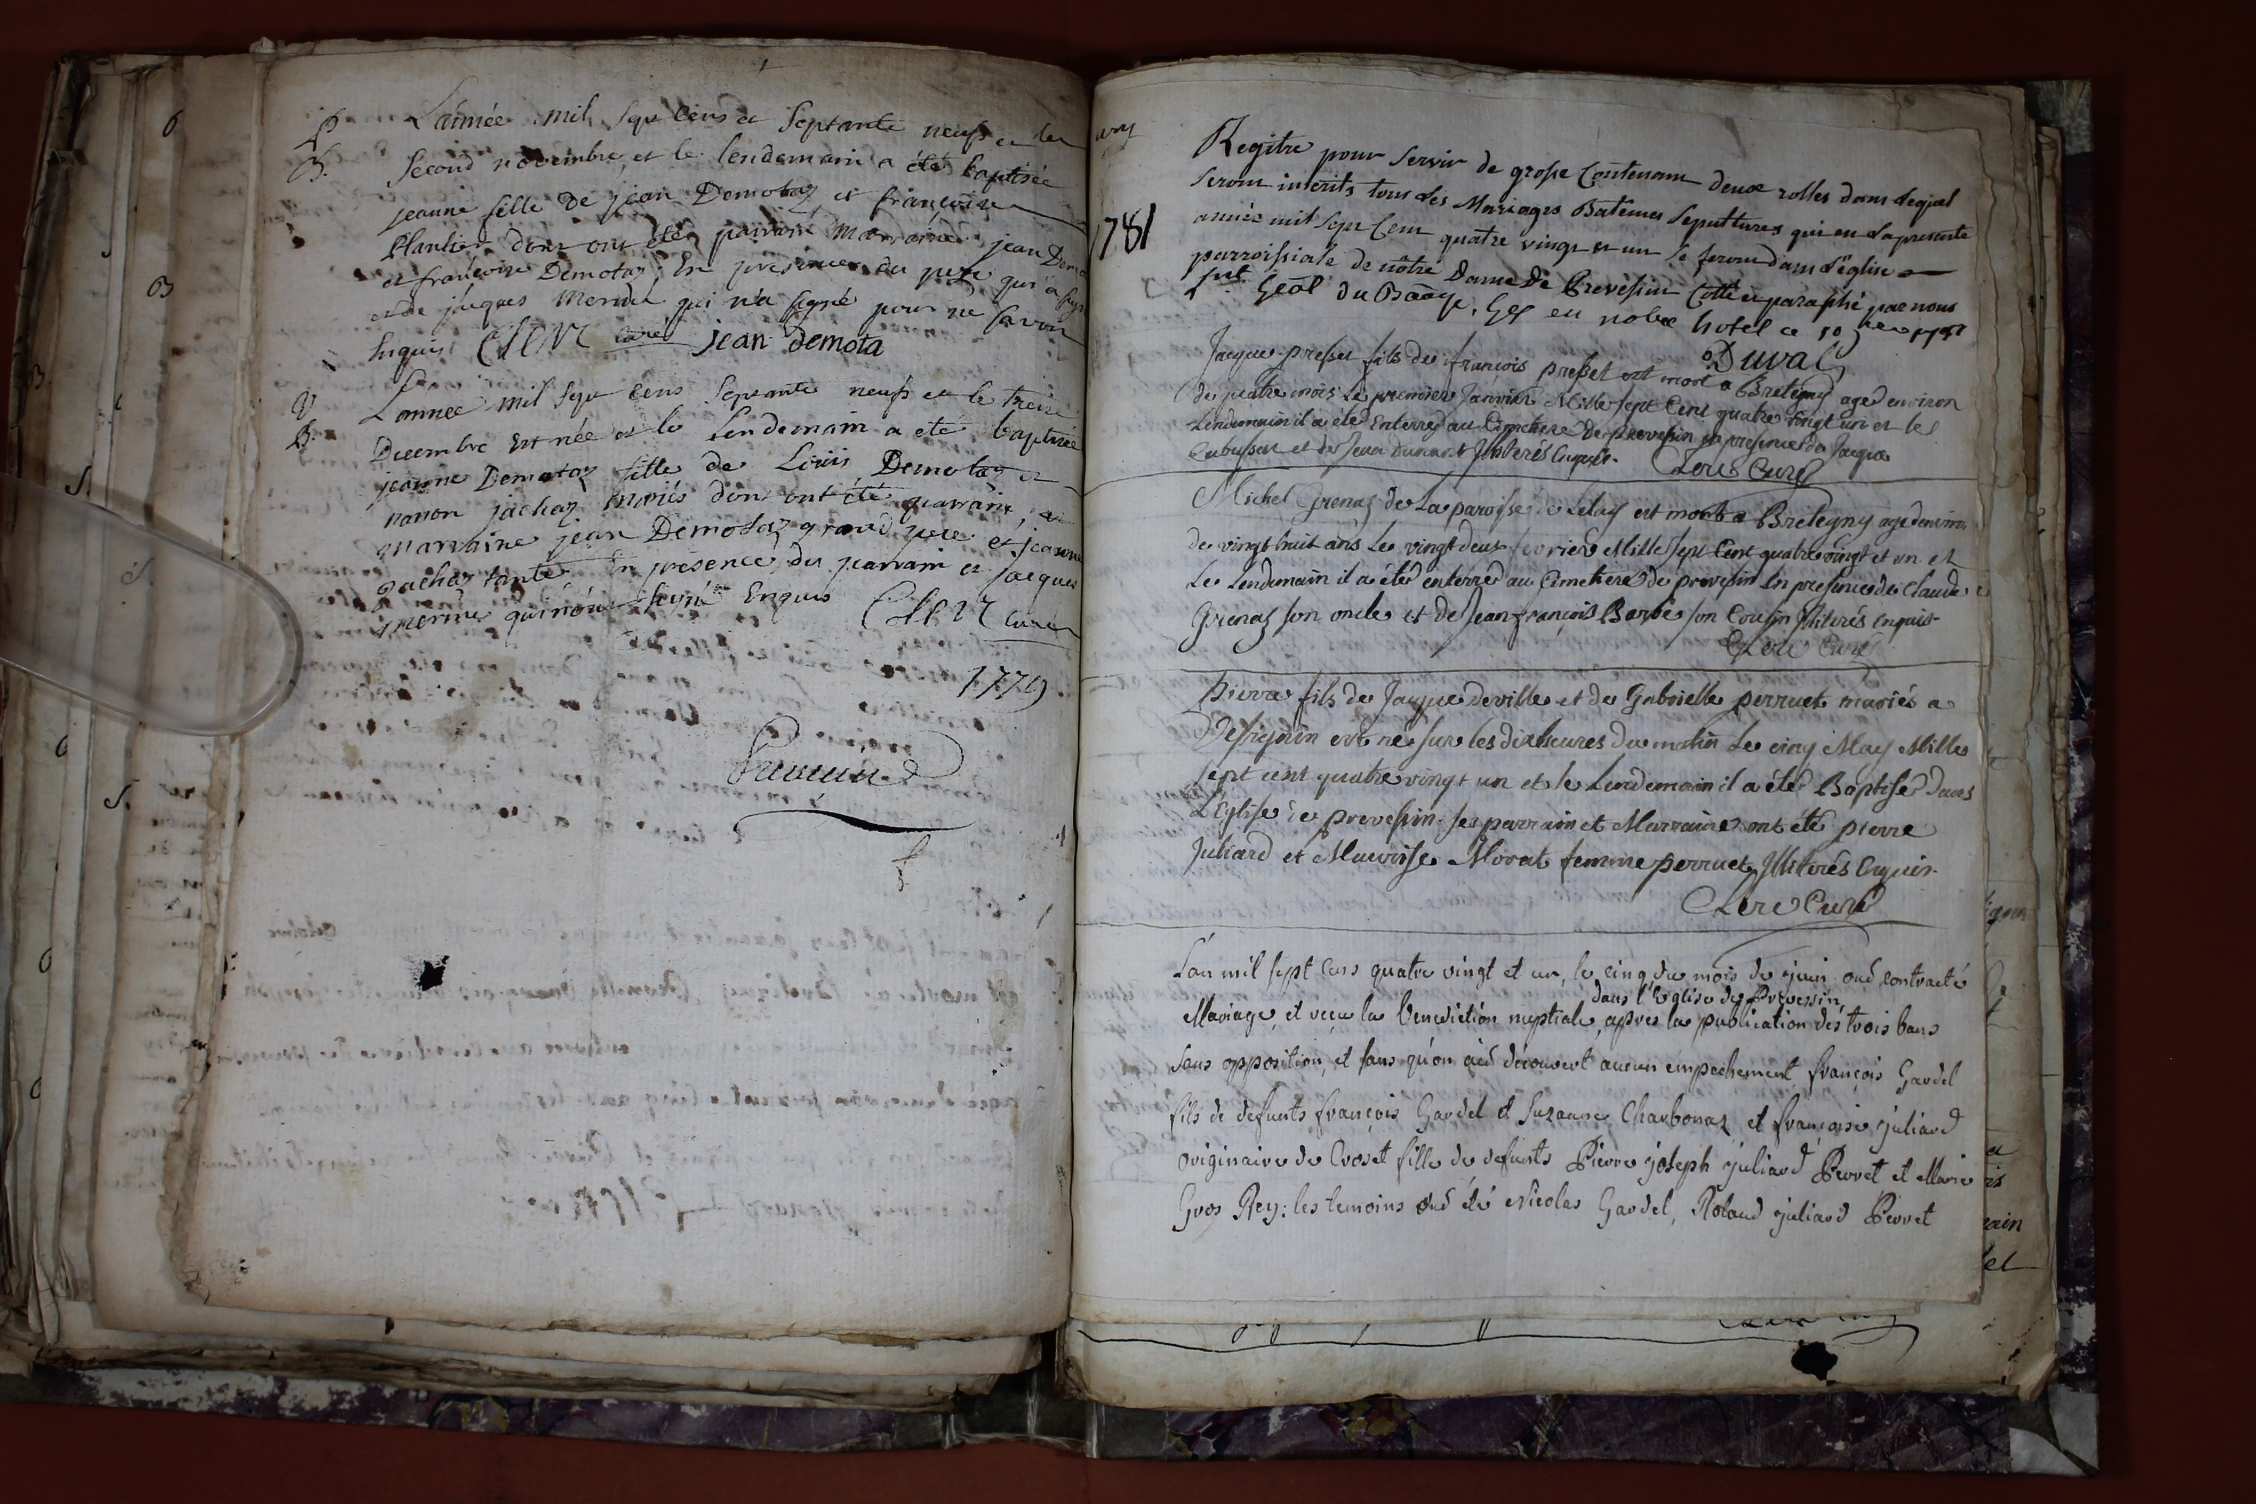 P.
B.
L'année mil sept cens et septante neuf et le
second novembre, et le lendemain a été baptisée
jeanne fille de jean Demotaz et françoise
Plantier dont ont été parrain marraine jean Demo
et françoise Demotaz, En presence du pere qui a signé
et de jacques Mermet qui n'a signé pour ne savoir
Enquis Curé jean demota
B.
L'année mil sept cens septante neuf et le treize
Decembre Est née et le lendemain a été baptisée
jeanne Demotaz fille de Louis Demotaz et
nanon jachaz mariés dont ont été parrain, et
marraine jean Demotaz grand pere et jeanne
jachaz tante, En presence du parrain et jacques
mermet qui n'ont signé Enquis Curé
1779
1781
Regitre pour servir de grosse Contenant deux rolles dans lequel
seront inscrits tous les Mariages Batêmes Sepultures qui en la presente
année mil sept Cent quatre vingt et un se feront dans l'église
parroissiale de nôtre Dame De Prevessin Cotté et paraphé par nous
du Baage. Gex en notre hotel ce 10
Duval
Jacque presset fils de françois presset est mort a Bretigny agé denviron
de quatre mois le premier Janvier Mille sept Cent quatre vingt un et le
Lendemain il a été Enterré au Cimetiere de prevessin En presence de Jacque
et de Jean Illiterés Enquis. Clerc Curé
Michel Grenaz de La paroisse de Lelay est mort a Bretegny agé denviron
de vingt huit ans Le vingt deux fevrier Mille sept Cent quatre vingt et un et
Le Lendemain il a été enterré au Cimetiere de prevessin En presence de Claude
Grenaz son oncle et de Jean françois Barbé son Cousin Illiterés Enquis
Clerc Curé
Pierre fils de Jacque deville et de Gabrielle perruet mariés a
Vesegnin est né sur les dix heures du matin Le cinq May Mille
sept cent quatre vingt un et le Lendemain il a été Baptisé dans
L'Eglise de prevessin. ses parrain et Marraine ont été pierre
Juliard et Morat femme perruet Illiterés Enquis.
Clerc Curé
L'an mil sept cens quatre vingt et un, le cinq du mois de juin ont contracté
dans l'Eglise de Prevessin
Mariage, et reçu la benediction nuptiale, apres la publication des trois bans
sans opposition, et sans qu'on ait decouvert aucun empechement, françois Gardel
fils de defunts françois Gardel et Suzanne Charbonaz et françoise juliard
originaire de Croset fille de defunts Pierre joseph juliard Perret et Marie
Gros Rey: les temoins ont été Nicolas Gardel, Roland juliard Perret